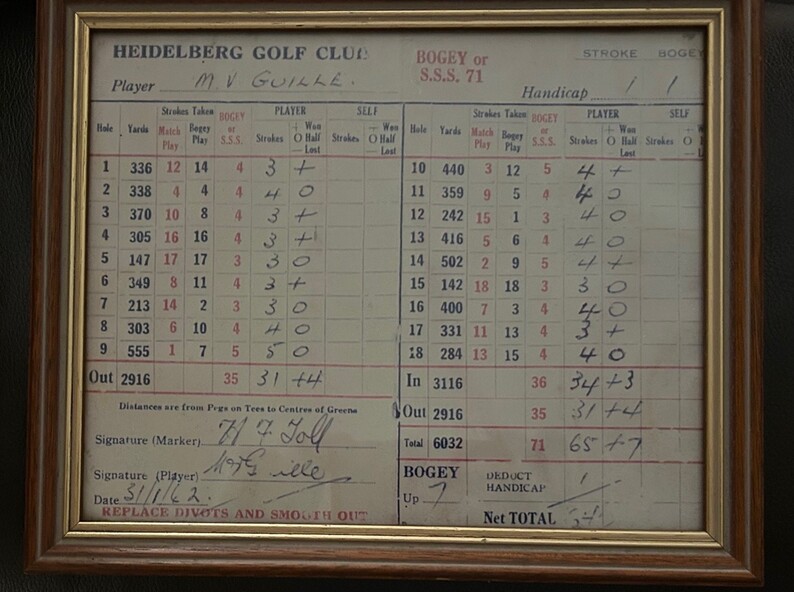 HEIDELBERG GOLF CLUB
BOGEY or S.S.S. 71
STROKE BOGEY
Player M V GUILLE.
Handicap 1 1
Hole Yards Strokes Taken Match Play Bogey Play BOGEY or S.S.S. PLAYER Strokes + Won O Half — Lost SELF Strokes + Won O Half — Lost
1 336 12 14 4 3 +
2 338 4 4 4 4 O
3 370 10 8 4 3 +
4 305 16 16 4 3 +
5 147 17 17 3 3 O
6 349 8 11 4 3 +
7 213 14 2 3 3 O
8 303 6 10 4 4 O
9 555 1 7 5 5 O
Out 2916 35 31 +4
Distances are from Pegs on Tees to Centres of Greens
Signature (Marker) H F Toll
Signature (Player)
Date 31/1/62.
REPLACE DIVOTS AND SMOOTH OUT
Hole Yards Strokes Taken Match Play Bogey Play BOGEY or S.S.S. PLAYER Strokes + Won O Half — Lost SELF Strokes O
10 440 3 12 5 4 +
11 359 9 5 4 4 O
12 242 15 1 3 4 O
13 416 5 6 4 4 O
14 502 2 9 5 4 +
15 142 18 18 3 3 O
16 400 7 3 4 4 O
17 331 11 13 4 3 +
18 284 13 15 4 4 O
In 3116 36 34 +3
Out 2916 35 31 +4
Total 6032 71 65 +7
BOGEY Up 7
DEDUCT HANDICAP 1
Net TOTAL